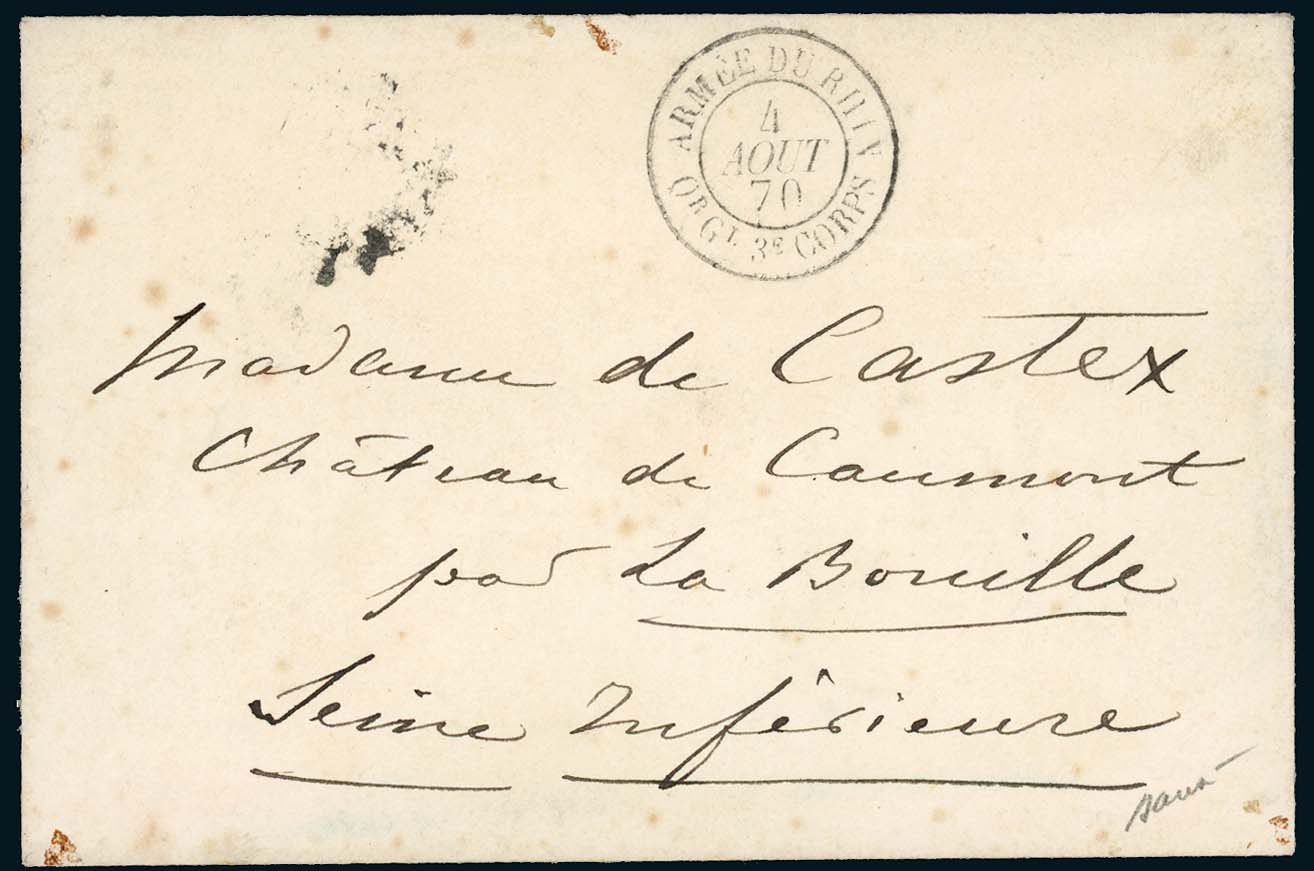 ARMÉE DU RHIN
4
AOUT
70
QR GL 3E CORPS
Madame de Castex
Château de Caumont
par La Bouille
Seine Inférieure